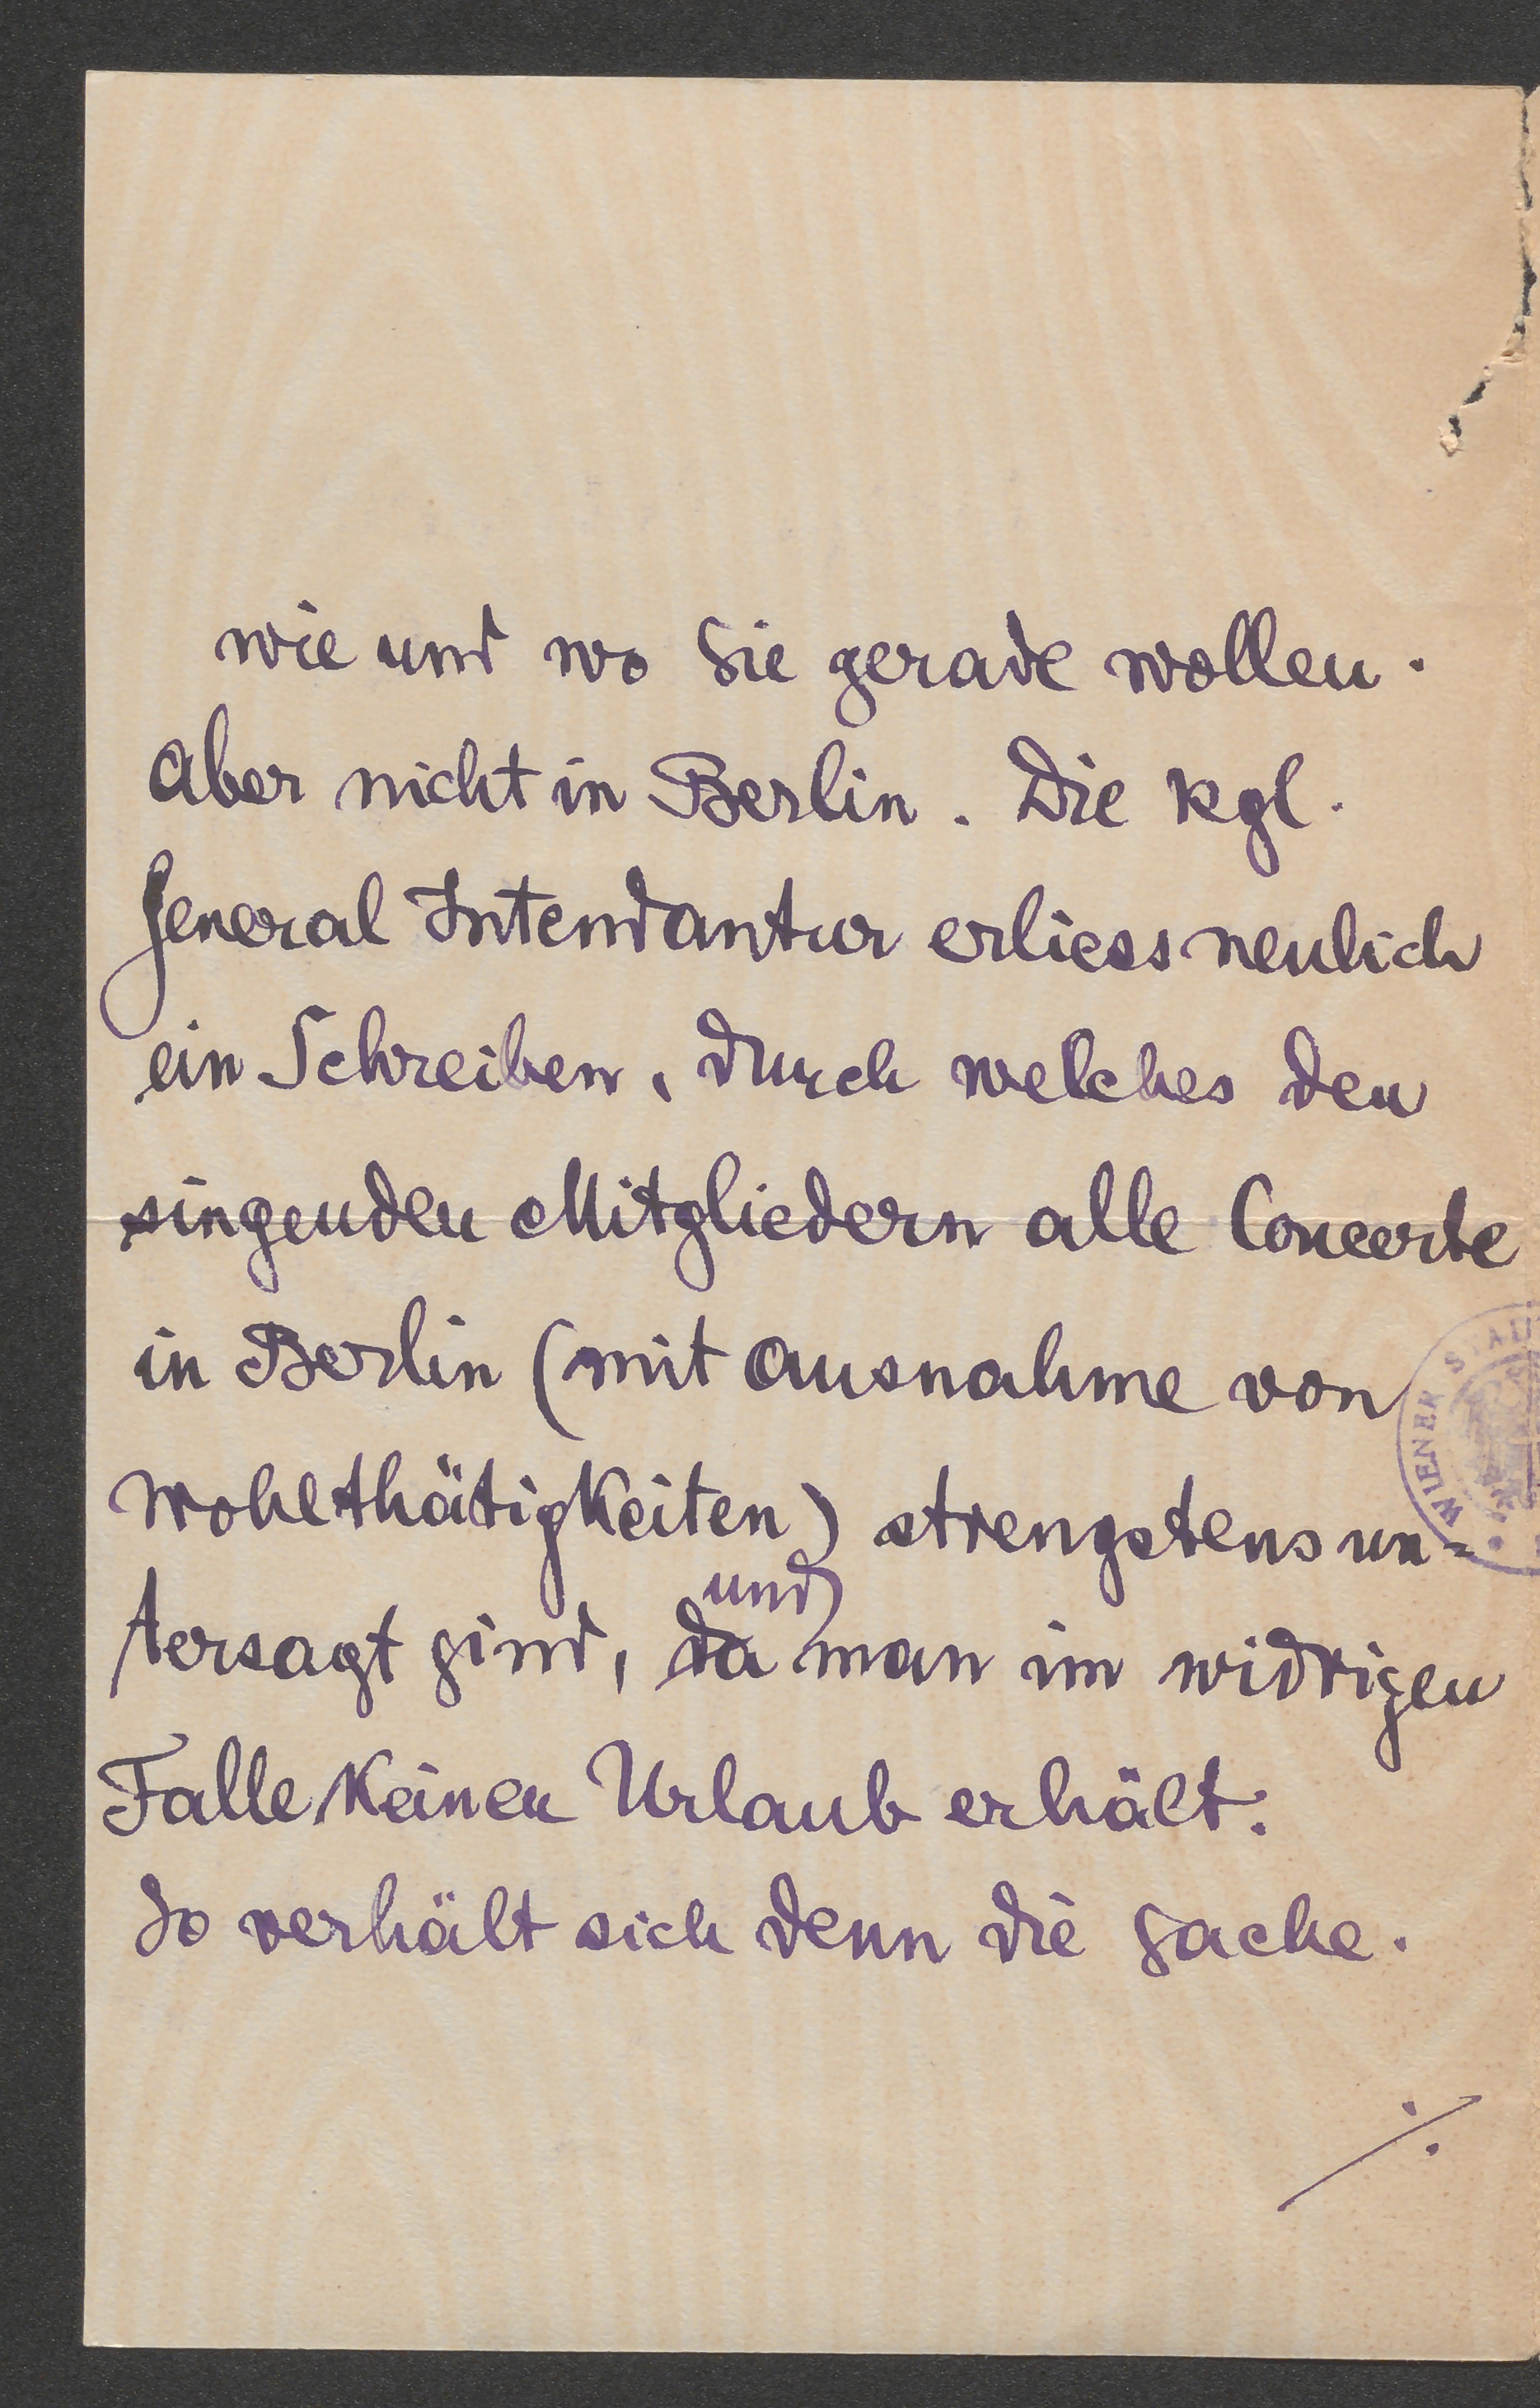 wie und wo Sie gerade wollen.
Aber nicht in Berlin. Die kgl.
General Intendantur erliess neulich
ein Schreiben, durch welches den
singenden Mitgliedern alle Concerte
in Berlin (mit Ausnahme von
Wohlthätigkeiten) strengstens un=
und
tersagt sind, da man im widrigen
Falle keinen Urlaub erhält.
So verhält sich denn die Sache.
./.
WIENER STAD